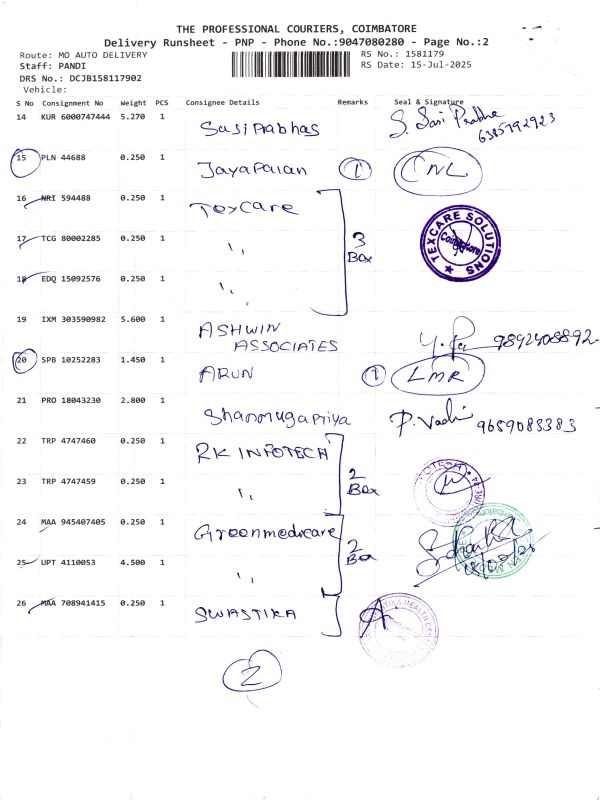 THE PROFESSIONAL COURIERS, COIMBATORE
Delivery Runsheet - PNP - Phone No.:9047080280 - Page No.:2
Route: MO AUTO DELIVERY
RS No.: 1581179
Staff: PANDI
RS Date: 15-Jul-2025
DRS No.: DCJB158117902
Vehicle:
S No Consignment No Weight PCS Consignee Details Remarks Seal & Signature
14 KUR 6000747444 5.270 1 Sasiprabhas S. Sasi Prabha
6385792923
15 PLN 44688 0.250 1 Jayapalan 1 CNL
16 NRI 594488 0.250 1 Texcare
17 TCG 80002285 0.250 1 ,, 3 Box TEXCARE SOLUTIONS Coimbatore
18 EDQ 15092576 0.250 1 ,,
19 IXM 303590982 5.600 1 ASHWIN
ASSOCIATES 9892408892
20 SPB 10252283 1.450 1 ARUN 1 LMR
21 PRO 18043230 2.800 1 Shanmugapriya P. Vadi 9659083383
22 TRP 4747460 0.250 1 RK INFOTECH
23 TRP 4747459 0.250 1 ,, 2 Box
24 MAA 945407405 0.250 1 Greenmedicare
25 UPT 4110053 4.500 1 ,, 2 Box
26 MAA 708941415 0.250 1 SWASTIKA
2